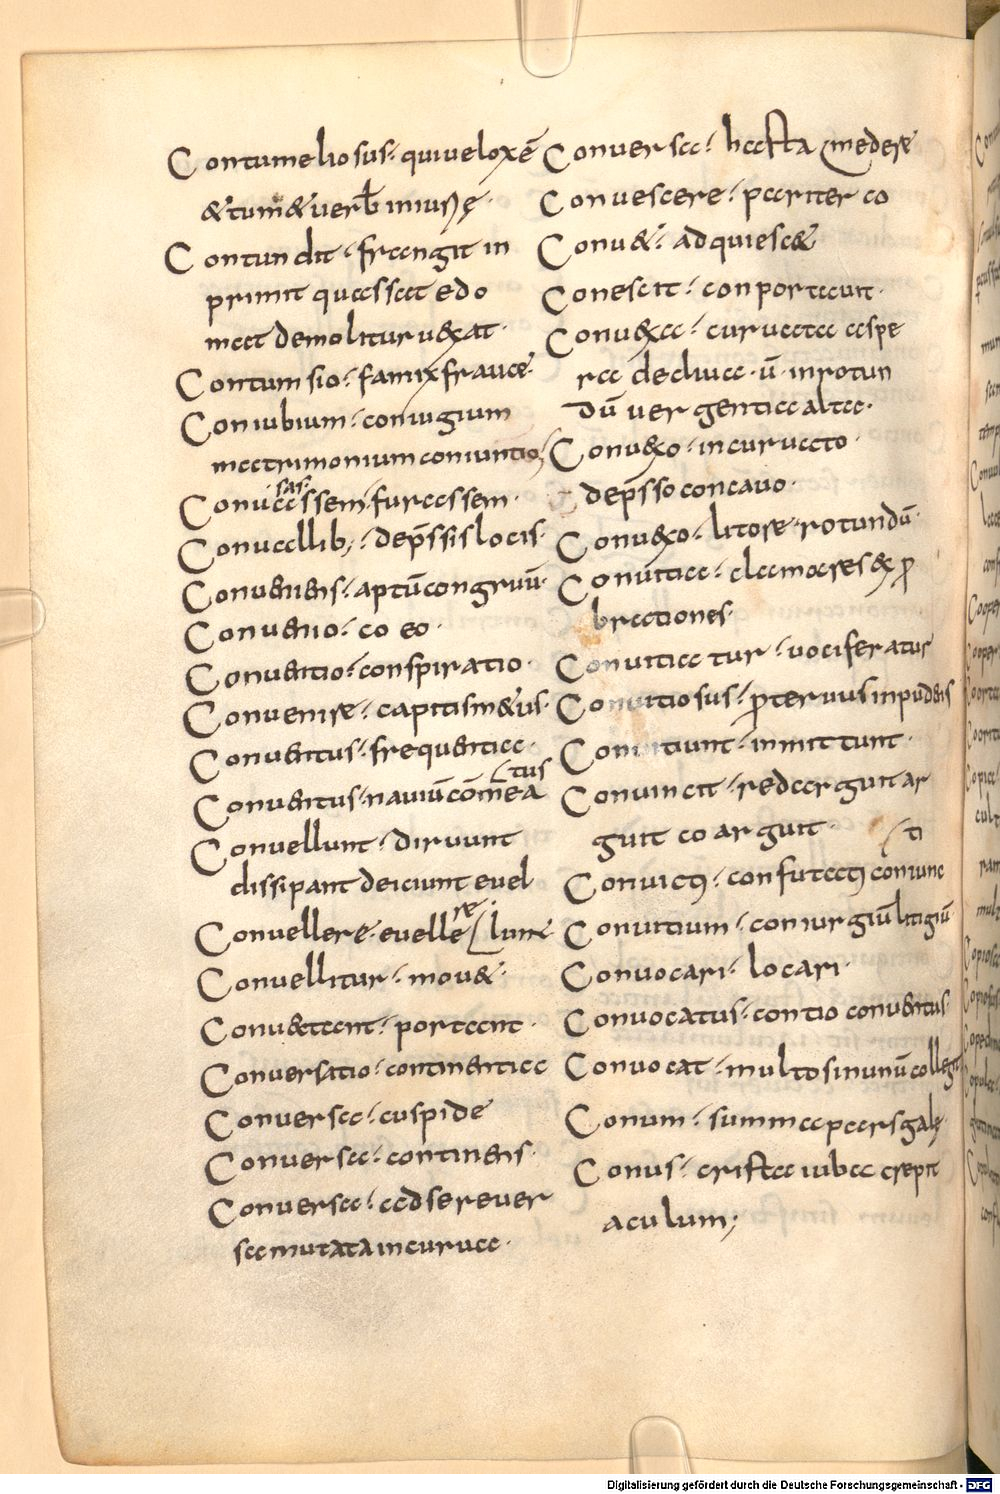 Contumeliosus · qui uelox ē
& tum & uerb iniurię ·
Contundit · frangit in
primit quassat edo
mat demolitur uexat ·
Contumsio · famix frauce ·
Coniubium · coniugium
matrimonium coniuntio
Conuassem · furassem · sas ·
Conuallib; · dep̄ssis locis ·
Conueniens · aptū congruū ·
Conuenio · co eo ·
Conuentio · conspiratio ·
Conuenire · capitis metus ·
Conuentus · frequentia ·
Conuentus · nauiū cōmea tus
Conuellunt · diruunt
dissipant deiciunt euel
Conuellere · euelle re · lunt
Conuellitur · mou& ·
Conuectant · portant ·
Conuersatio · continentia
Conuersa · cuspide
Conuersa · continens ·
Conuersa · ad se reuer
sa mutata incurua ·
Conuersa · hasta medere
Conuescere · pariter co
Conu& · adquiesc&
Conescit · conportauit ·
Conu&xa · curuata aspe
ra decliua · ū · inrotun
dū uergentia alta ·
Conu&xo · incuruato ·
dep̄sso concauo ·
Conu&xo · litore · rotundū ·
Conuitia · clamores & p
brationes ·
Conuitiatur · uociferatur
Conuitiosus · proteruus inpudens
Conuitiunt · inmittunt ·
Conuincit · redarguit ar
guit co arguit ·
Conuictus · confutatus coniunc ti
Conuitium · coniurgiū litigiū ·
Conuocari · locari ·
Conuocatus · contio conuentus ·
Conuocat · multos in unū collegit
Conum · summa pars galę
Conus · crista iuba crepit
aculum;
Digitalisierung gefördert durch die Deutsche Forschungsgemeinschaft - DFG